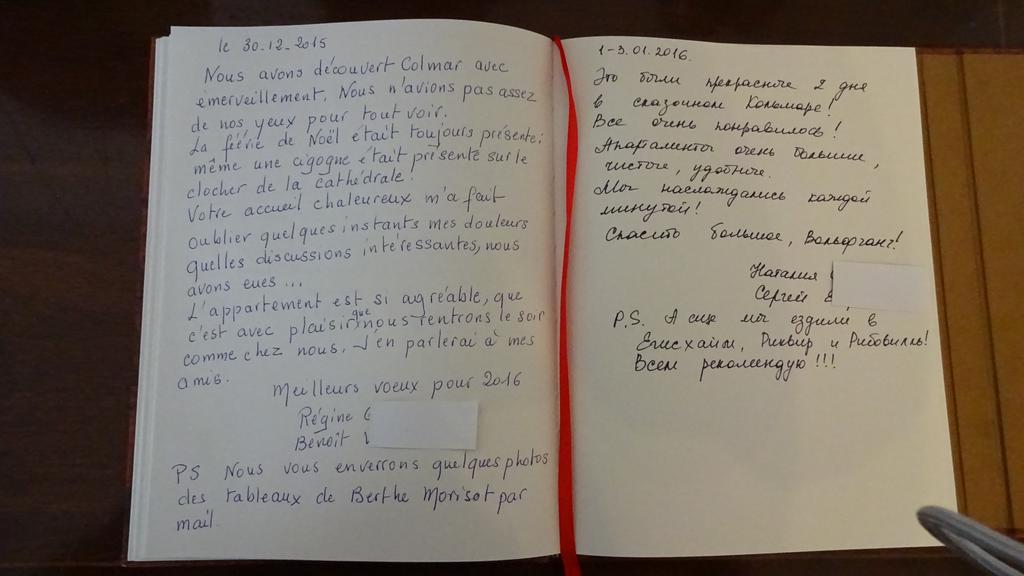 le 30-12-2015
Nous avons découvert Colmar avec
émerveillement. Nous n'avions pas assez
de nos yeux pour tout voir.
La féérie de Noël était toujours présente:
même une cigogne était présente sur le
clocher de la cathédrale!
Votre accueil chaleureux m'a fait
oublier quelques instants mes douleurs
quelles discussions intéressantes, nous
avons eues ...
L'appartement est si agréable, que
c'est avec plaisir que nous rentrons le soir
comme chez nous. J'en parlerai à mes
amis.
Meilleurs voeux pour 2016
Régine
Benoît
PS Nous vous enverrons quelques photos
des tableaux de Berthe Morisot par
mail.
1-3.01.2016.
Это были прекрасные 2 дня
в сказочном Кольмаре!
Все очень понравилось!
Апараменты очень большие,
чистые, удобные.
Мы наслаждались каждой
минутой!
Спасибо большое, Вольфганг!
Наталия
Сергей
P.S. А еще мы ездили в
Егисхайм, Риквир и Рибовилль!
Всем рекомендую!!!